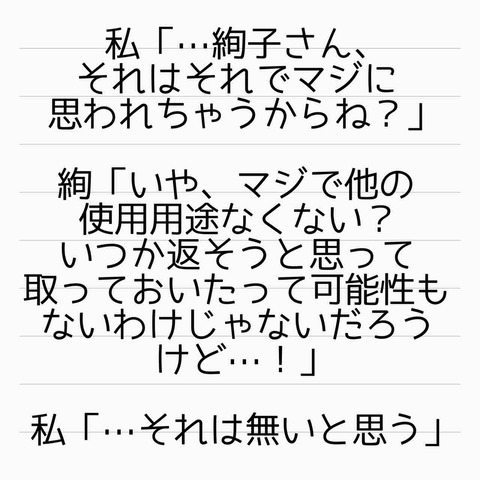 私「…絢子さん、
それはそれでマジに
思われちゃうからね？」
絢「いや、マジで他の
使用用途なくない？
いつか返そうと思って
取っておいたって可能性も
ないわけじゃないだろう
けど…！」
私「…それは無いと思う」